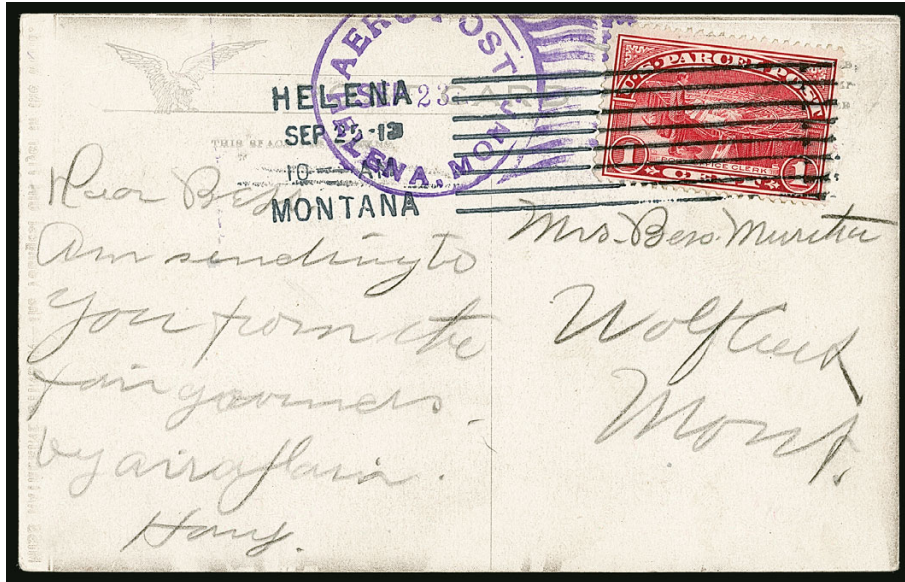 AERO POST
HELENA, MONT.
23
HELENA
SEP 25-13
10 AM
MONTANA
CARD
THIS SPACE
U.S. PARCEL POST
1 POST OFFICE CLERK 1
Dear Bess
Am sending to
you from the
fair grounds
by airaplain.
Harry.
Mrs. Bess
Wolf Creek
Mont.